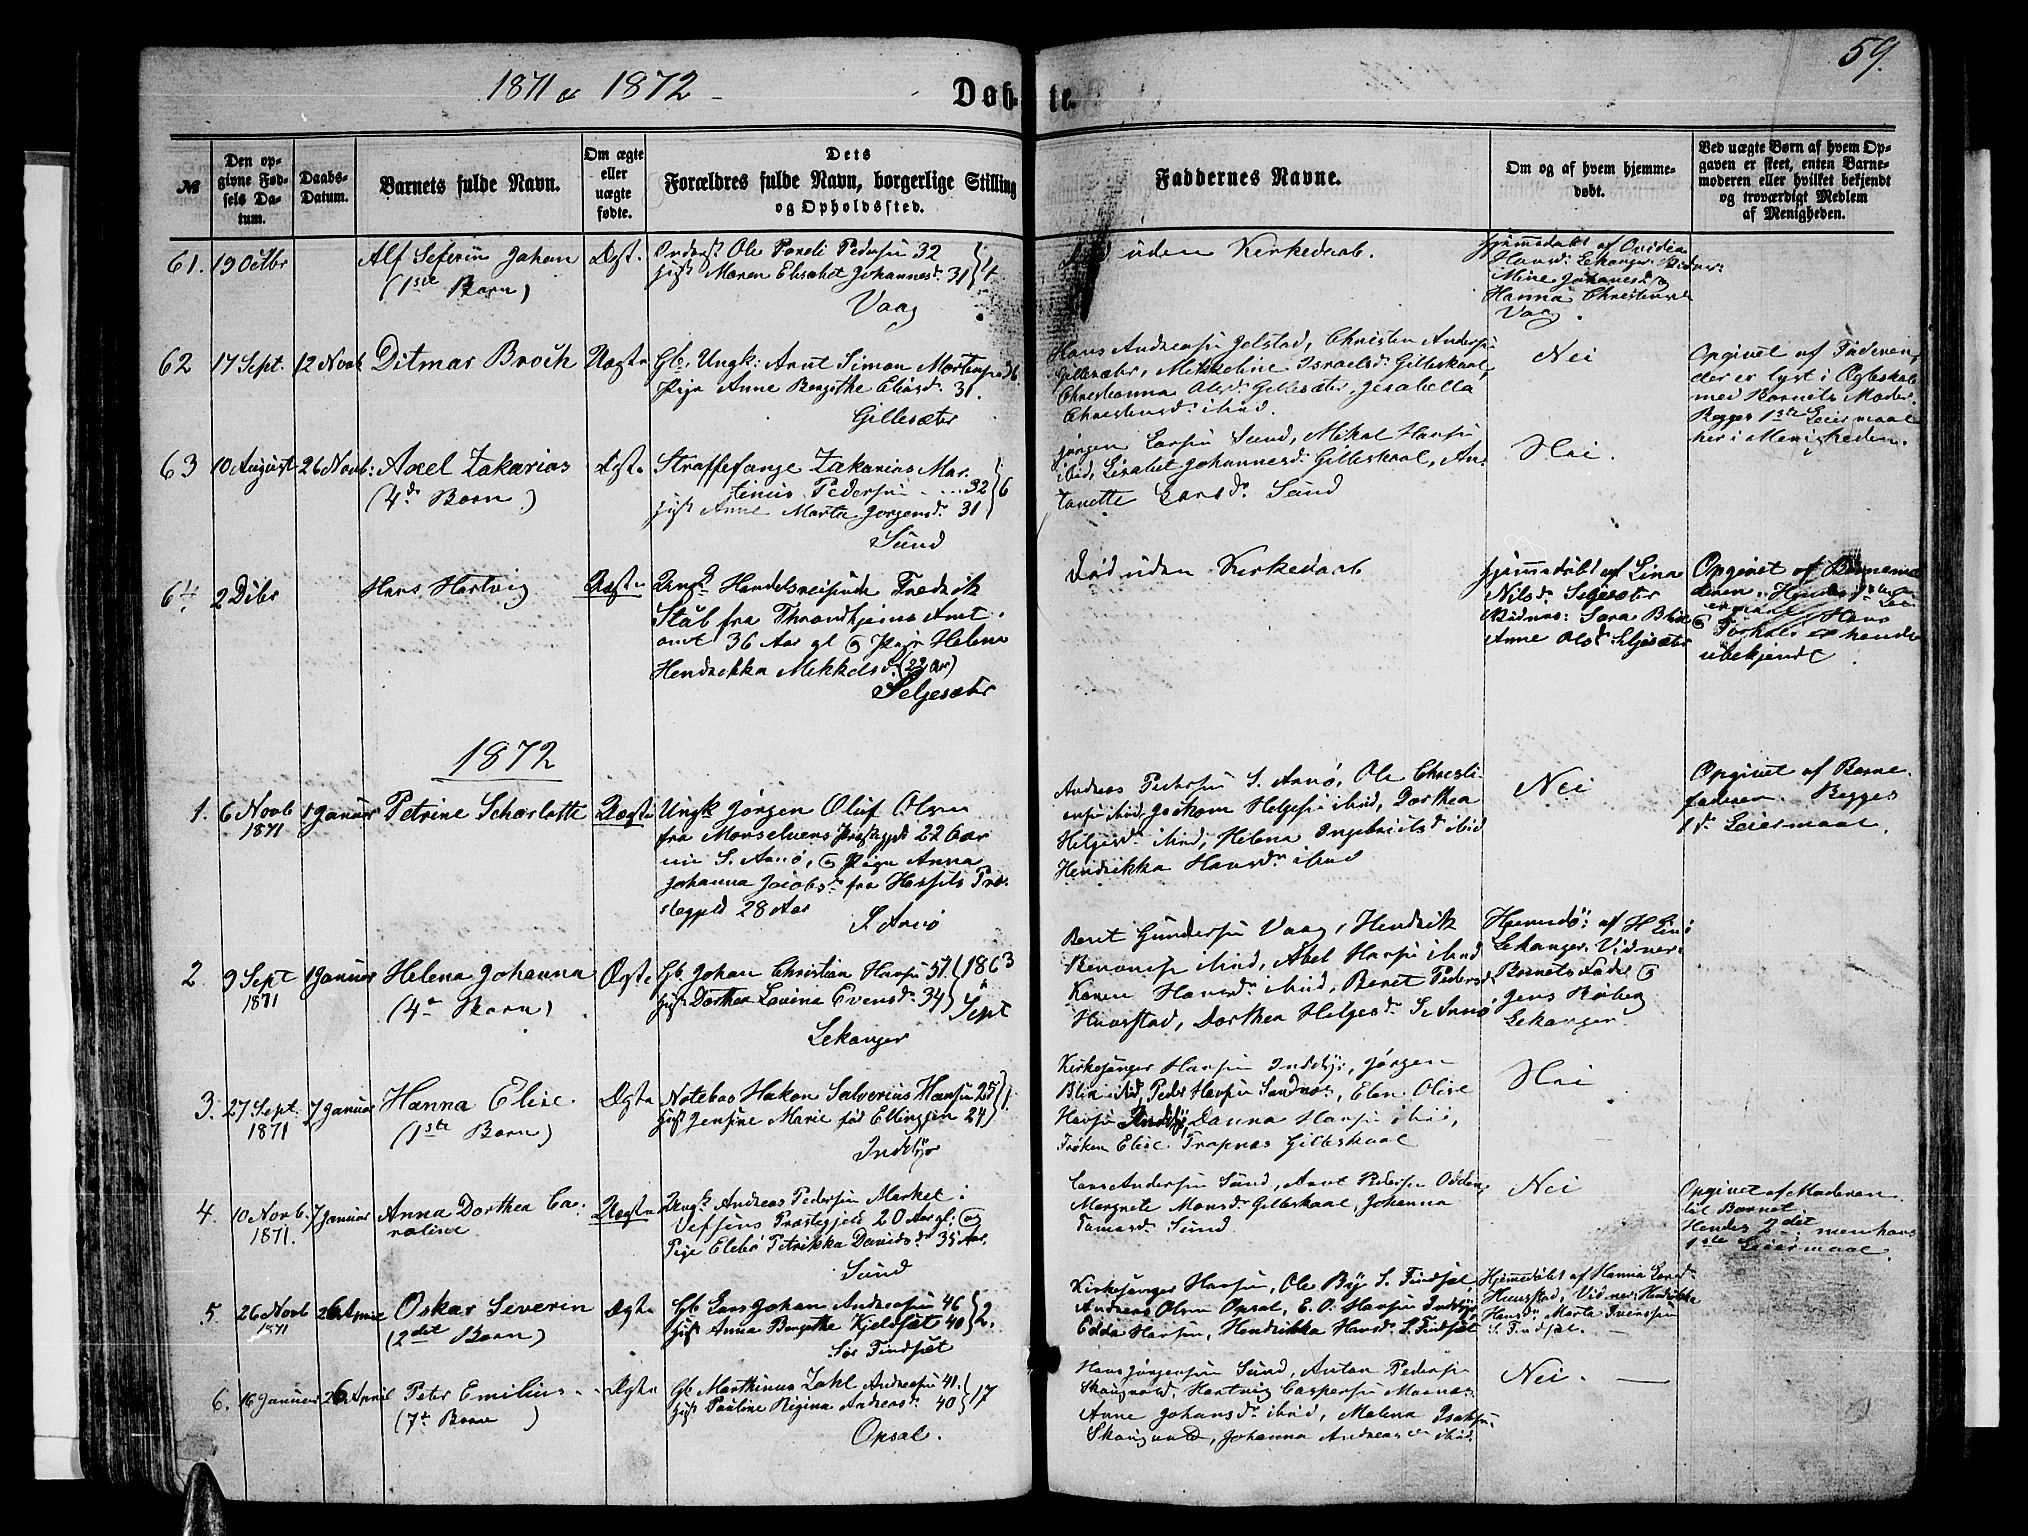 59.
1871 & 1872
Døbte.
№
Den opgivne Fødsels Datum.
Daabs-Datum.
Barnets fulde Navn.
Om ægte eller uægte fødte.
Dets Forældres fulde Navn, borgerlige Stilling og Opholdssted.
Faddernes Navne.
Om og af hvem hjemmedøbt.
Ved uægte Børn af hvem Opgaven er skeet, enten Barnemoderen eller hvilket bekjendt og troværdigt Medlem af Menigheden.
61. 19 Octbr
Alf Seferin Johan
(1ste Barn)
Ægt.
Ole Pedersen 32
Maren Elisabet Johannesd. 31 } 4
Vaag
Død uden Kirkedaab.
Hjemmedøbt af Ovidia
Hansd. Lekanger. Vidner:
Mine Johannesd. og
Hanna Christensd.
Vaag.
62 17 Sept. 12 Novb
Ditmar Broch
Uægte
Gb. Ungk: Arnt Simon Mortensen 26
Pige Anne Bergithe Eliasd. 31.
Gillesæter
Hans Andreasen Jelstad, Christen Andersen
Gillesæter, Mikkeline Israelsd. Gilleskaal,
Christianna Olsd. Gillesæter, Jesabella
Christensd. ibid.
Nei
Opgivet af Faderen,
der er lyst i Ægteskab
med Barnets Moder.
Begges 1ste Leiermaal
her i Menigheden.
63 10 August 26 Novb:
Axel Zakarias
(4de Barn)
Ægte
Straffefange Zakarias Mar-
tinus Pedersen 32
Anne Marta Jørgensd. 31 } 6
Sund
Jørgen Larsen Sund, Mikal Hansen
ibid, Lisabet Johannesd. Gilleskaal, An-
tonette Larsd. Sund
Nei.
64 2 Dcbr
Hans Hartvig
Uægte
Ungk. Handelsreisende Fredrik
Stub fra Throndhjems Amt.
amt 36 Aar gl og Pige Helena
Hendrikka Mikkelsd. (22 Aar)
Seljesæter
Død uden Kirkedaab
Hjemmedøbt af Lina
Nilsd. Seljesæter
Vidner: Sara Blix
Anne Olsd. Seljesæter
Opgivet af Barnemo-
deren. Hendes
Hans
Forhold er hende
ubekjendt.
1872
1. 6 Novb 1871 1 Januar
Petrine Scharlotte
Uægte
Ungk Jørgen Oluf Olsen
fra Maaselvens Præstegjeld 22 Aar
nu S. Arnø, og Pige Anna
Johanna Jacobsd. fra Hassels Præ-
stegjeld 28 Aar
S. Arnø
Andreas Pedersen S. Arnø, Ole Christi-
ensen ibid, Joakom Helgesen ibid, Dorthea
Helgesd. ibid, Helena Ingebrigtsd. ibid
Hendrikka Hansd. ibid
Nei
Opgivet af Barne-
faderen. Begges
1ste Leiermaal.
2 9 Sept 1871 1 Januar
Helena Johanna
(4de Barn)
Ægte
Gb. Johan Christian Hansen 57
Dorthea Lovina Evensd. 34 } 1863 Sept
Lekanger
Beret Gundersen Vaag, Hendrik
Benonisen ibid, Abel Hansen ibid
Karen Hansd. ibid, Beret Pedersd.
Haugstad, Dorthea Helgesd. S. Arnø
Hjemmedø: af H
Lekanger. Vidner:
Barnets Fader og
Jens Kiberg
Lekanger.
3. 27 Sept. 1871 7 Januar
Hanna Elise.
(1ste Barn)
Ægte
Notebas Hakon Salverius Hansen 25
Jensine Marie fød Ellingsen 24 } 1.
Inddyr
Kirkesanger Hansen Inddyr, Jørgen
Blix ibid, Peder Hansen Sandnes, Elen Olise
Hansen Inddyr, Danna Hansen ibid,
Frøken Elise Trapnes Gilleskaal
Nei
4. 10 Novb. 1871. 7 Januar
Anna Dorthea Ca-
roline
Uægte
Ungk. Andreas Pedersen Market i
Vefsens Præstegjeld 20 Aar gl, og
Pige Elebø Petrikka Davidsd. 35 Aar.
Sund
Lars Andersen Sund, Arnt Pedersen Odden,
Margrete Monsd. Gilleskaal, Johanna
Tomasd. Sund
Nei
Opgivet af Moderen
til Barnet.
Hendes 2det, men hans
1ste Leiermaal.
5 26 Novb 1871 26 April
Oskar Severin
(2det Barn)
Ægte
Gb Lars Johan Andreasen 46
Anna Bergithe Kjeldsdt 40 } 2.
Sør Findset
Kirkesanger Hansen, Ole Bye S. Findset,
Andreas Olsen Opsal, E. O. Hansen Inddyr,
Edda Hansen, Hendrikka Hansd. S. Findset
Hjemmedøbt af Hanna Larsd.
Haugstad, Vidner: Hendrikka
Hansd. Marta Iversen
S. Findset.
6. 16 Januar 26 April
Peter Emilius.
(7de Barn)
Ægte
Gb Marthinus Zahl Andreasen 41.
Pauline Regina Andreasd. 40 } 17
Opsal.
Hans Jørgensen Sund, Anton Pedersen
Skaugvold, Hartvig Caspersen Mosnes
Anne Johansd. ibid, Malena Isaksen
Skaugvold, Johanna Andreasen ibid.
Nei.